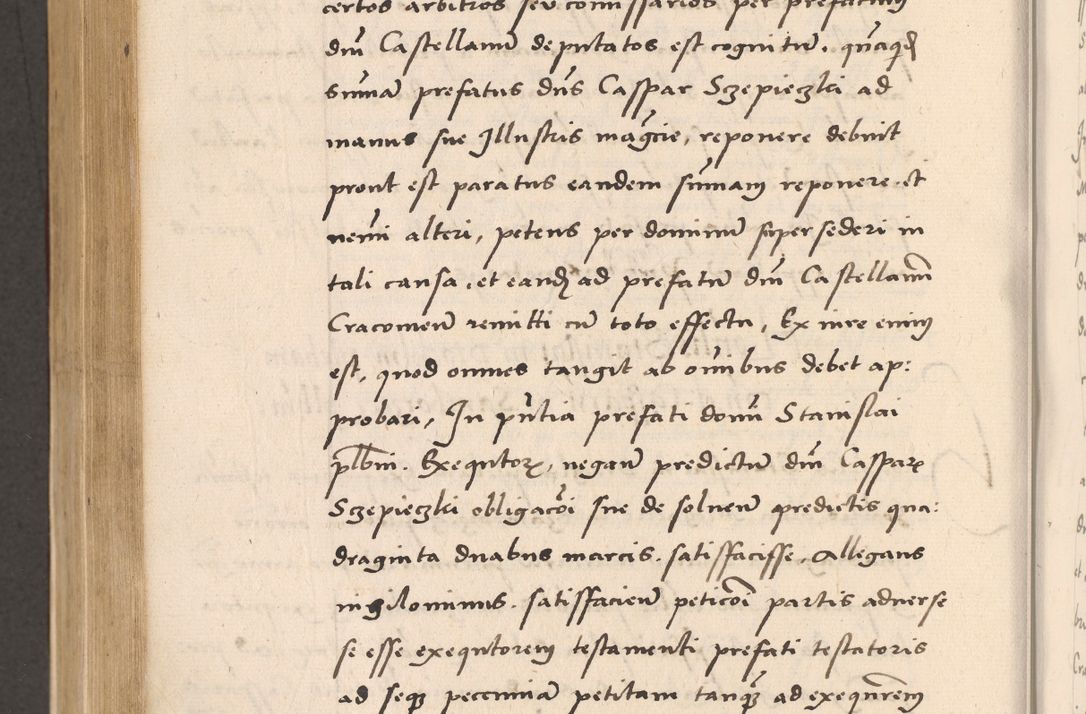 certos arbitros seu comissarios per prefatum
dnm Castellanū deputatos est cognitū. quaquid
sumā prefatus dns Caspar Sczepieczki ad
manus sue Illustris magcie, reponere debuit
prout est paratus eandem sumam reponere et
nemi alteri, petens per dominū supersederi in
tali causa, et eand ad prefatū dnm Castellanū
Cracovien remitti cū toto effectu, Ex iure enim
est, quod omnes tangit ab omibus debet ap:
probari, In pntia prefati domi Stanislai
plbni. Exequutor, negan predictū dnm Caspar
Sczepieczki obligacoi sue de solven predictis qua:
draginta duabus marcis. satisfacisse, Allegans
nihilominus. satisfacien peticoi partis adverse
se esse exequutorem testamenti prefati testatoris
ad seque pecuniā petitam tanq ad exequrem